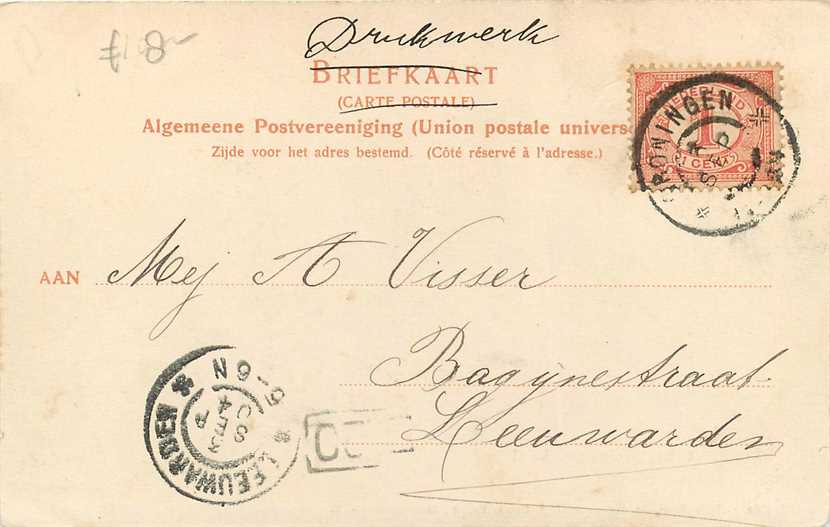 Drukwerk
BRIEFKAART
(CARTE POSTALE)
Algemeene Postvereeniging (Union postale univers
Zijde voor het adres bestemd. (Côté réservé à l'adresse.)
NEDERLAND
1
1 CENT
GRONINGEN
SEP
AAN Mej A Visser
Bagijnestraat
Leeuwarden
LEEUWARDEN
4 SEP
6-9N